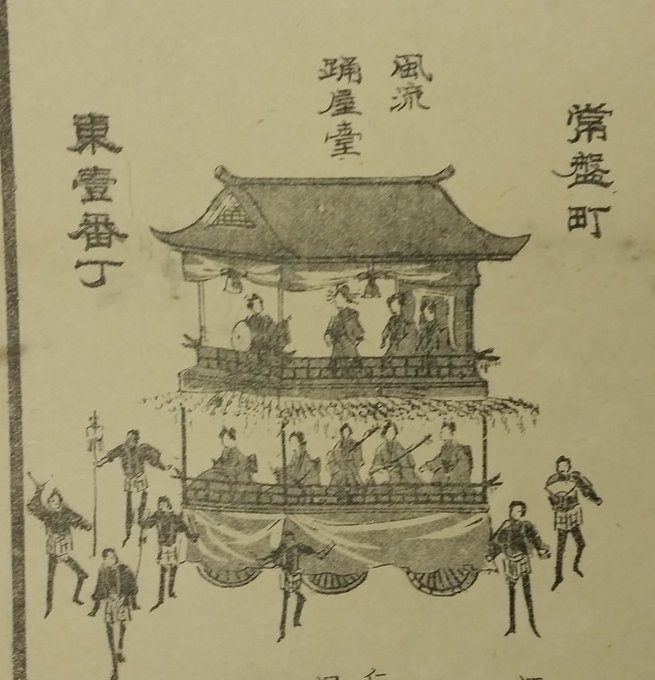 常盤町
風流
踊屋臺
東壹番丁